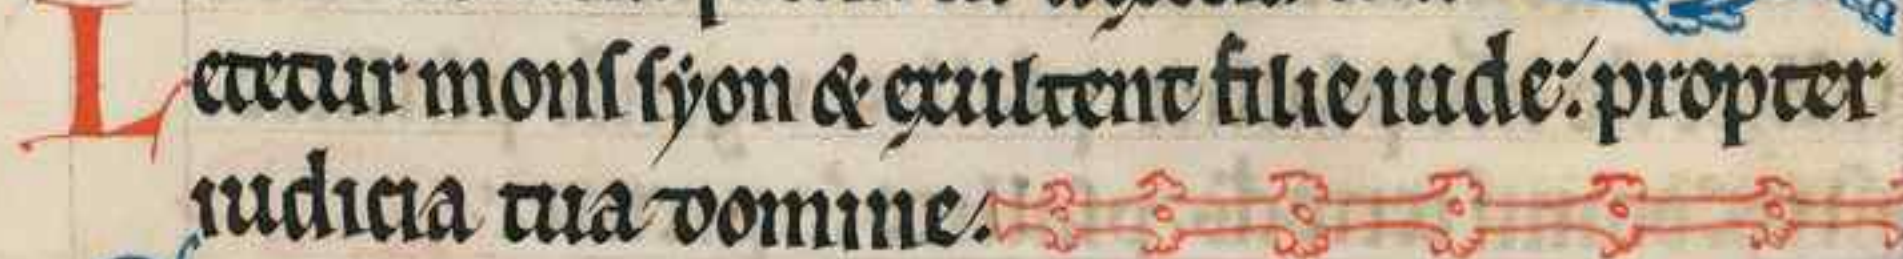 Letetur mons syon & exultent filie iude: propter
iudicia tua domine.